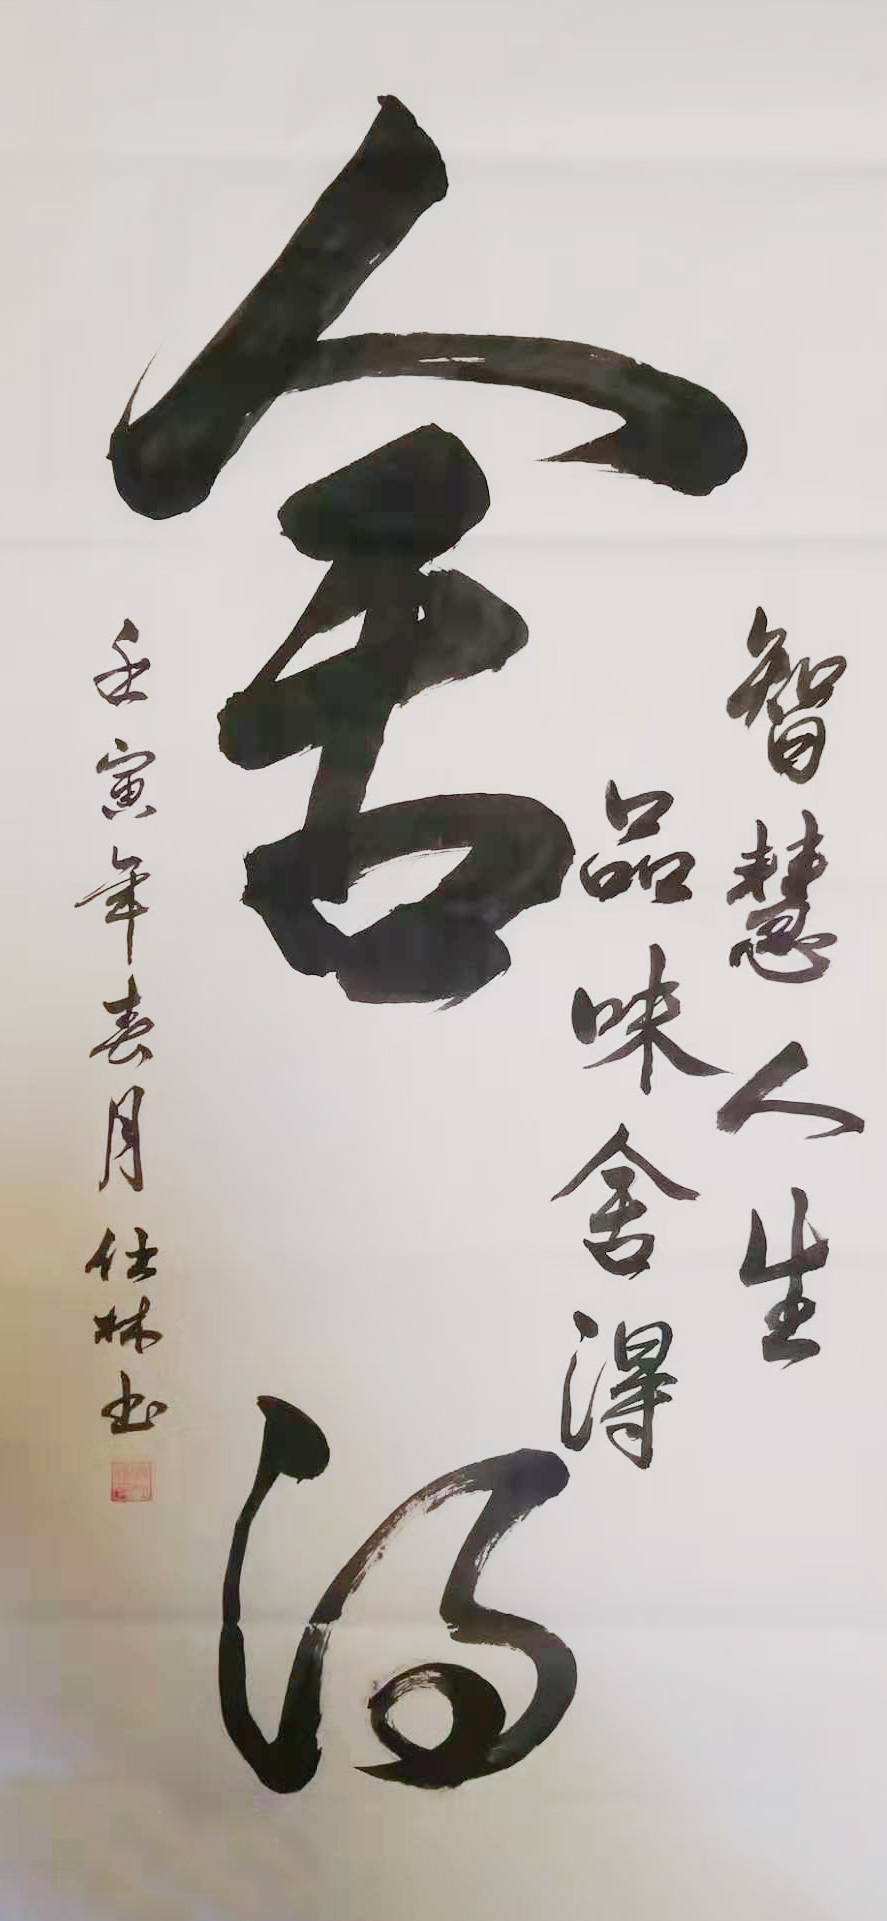 智慧人生
品味舍得
舍得
壬寅年春月仕林书